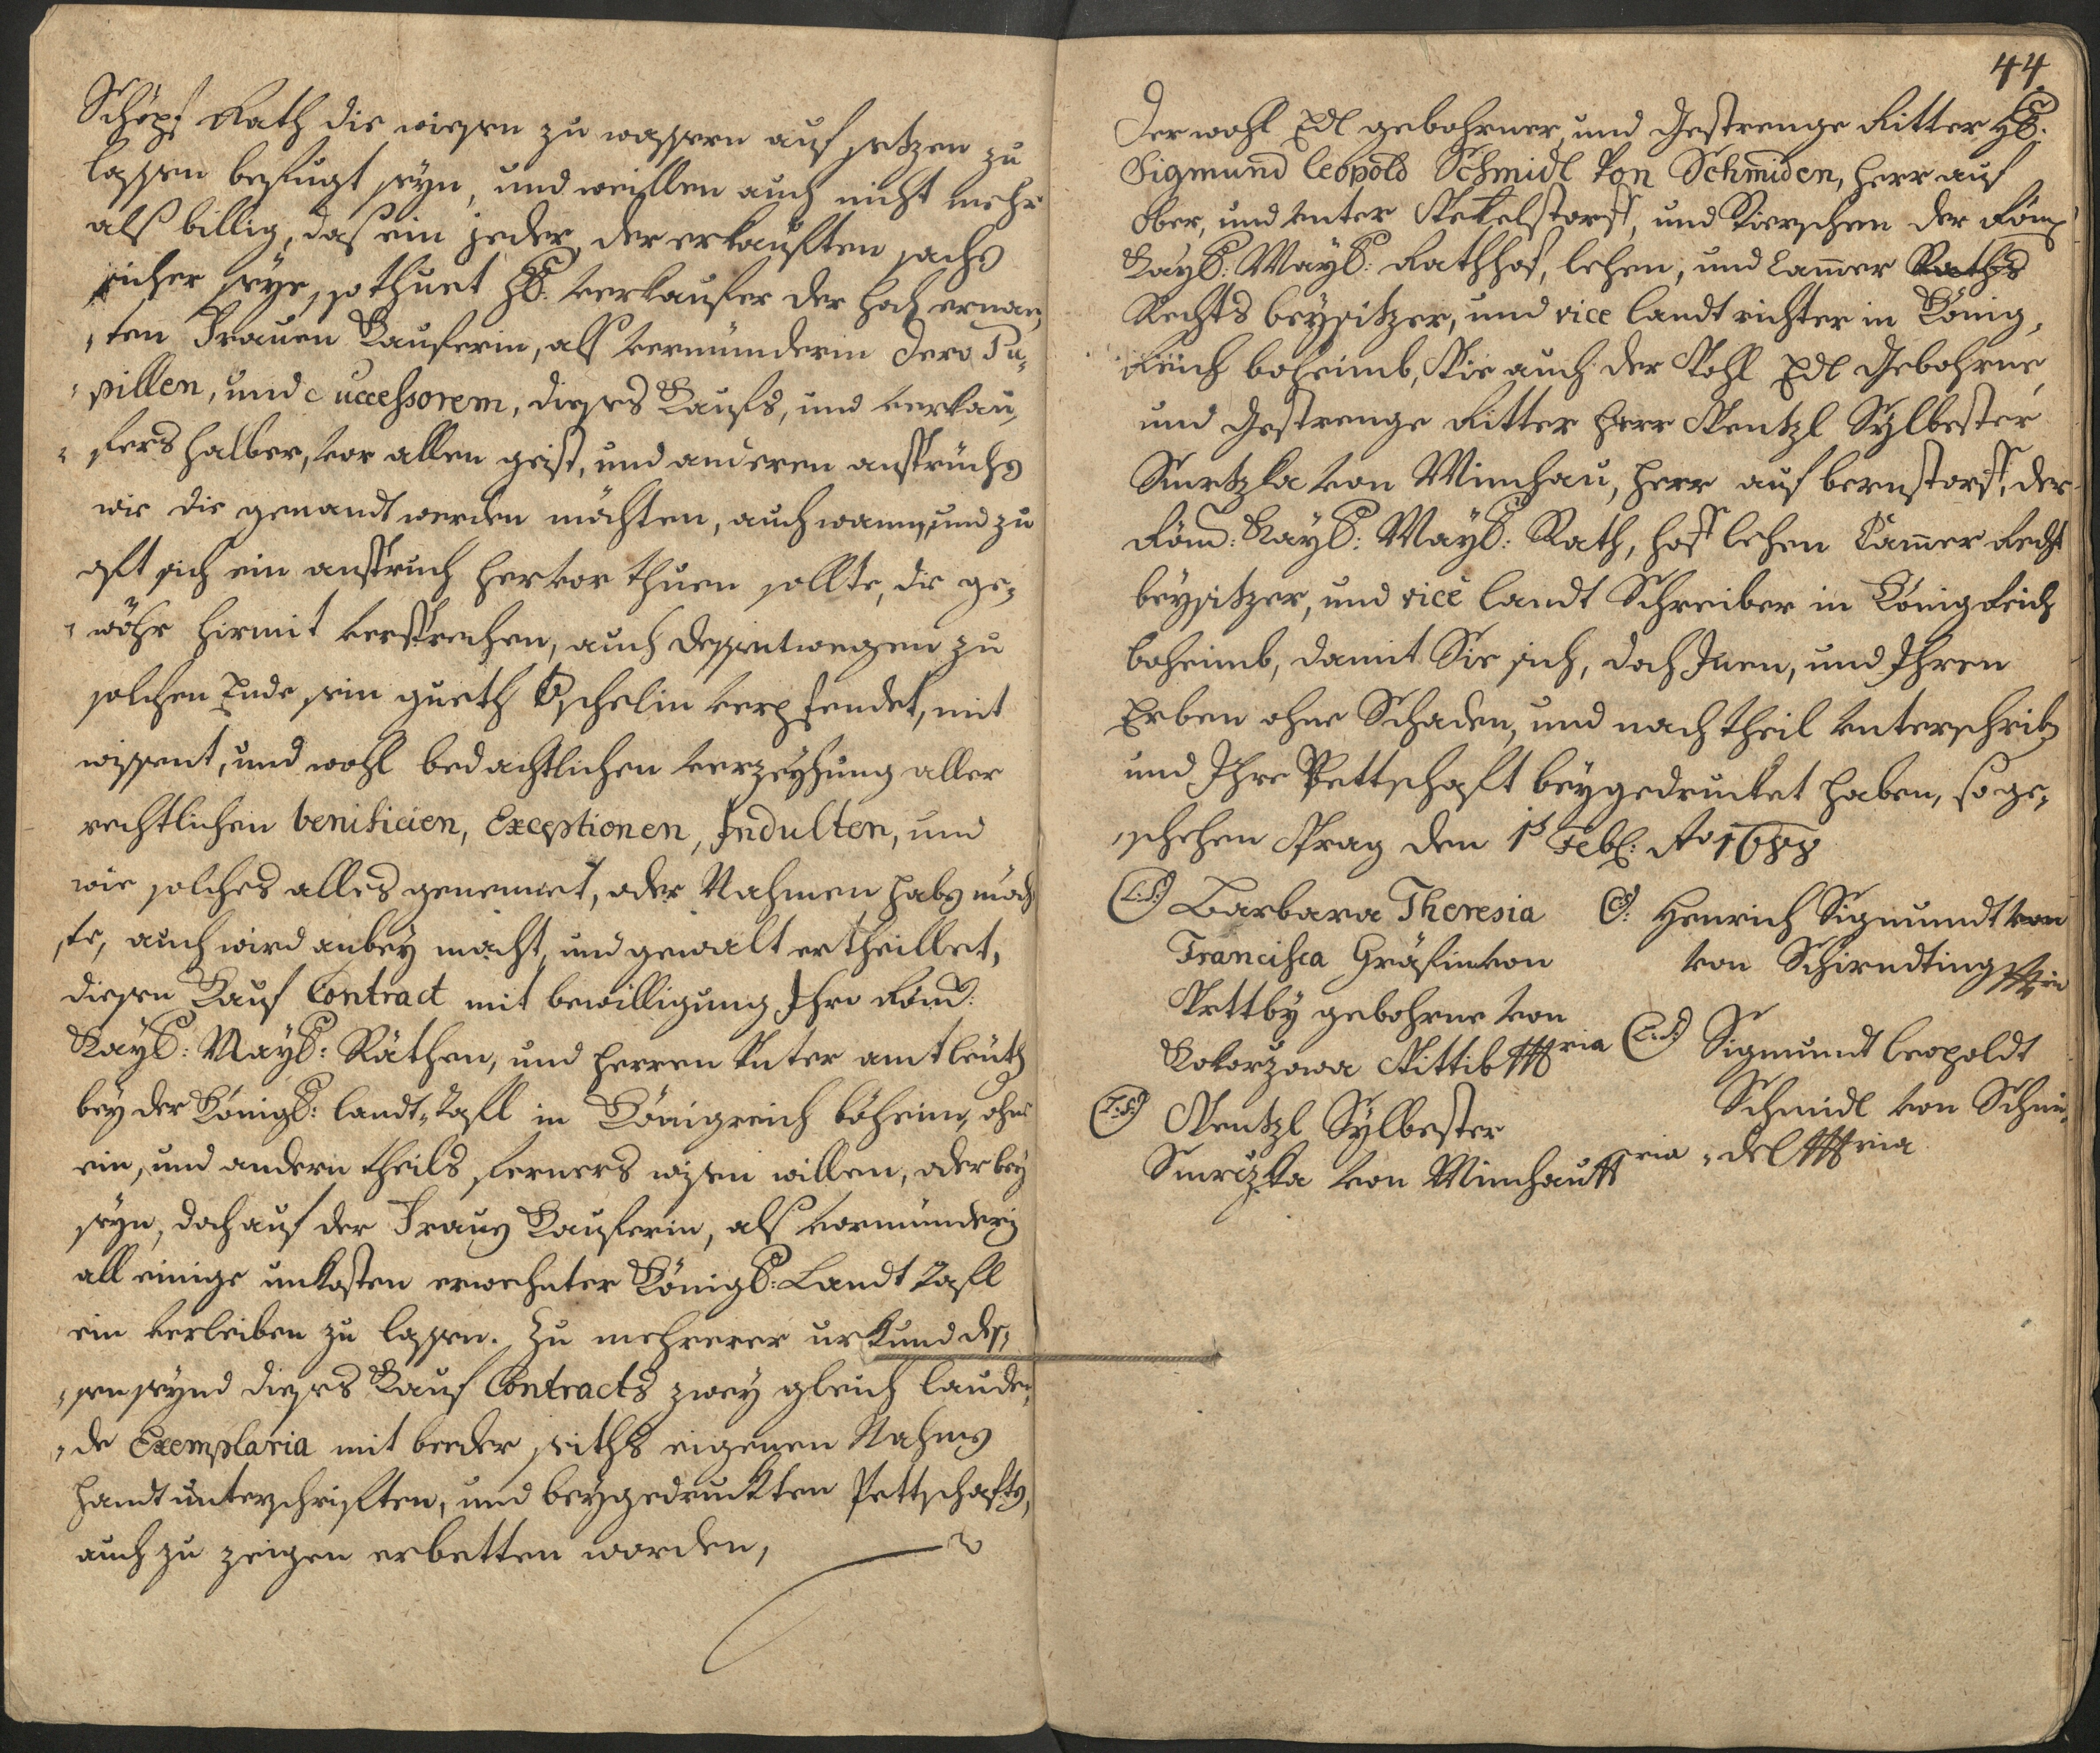 Schöpf Rath die wiesen zu wassern auf setzen zu
lassen befugt seyn, und weillen auch nicht mehr
alß billig, daß ein jeder, der erkauften sache
sicher seye, so thuet H: Verkaufer der hoch ernan,
,ten Frauen Kauferin, alß Vermünderin dero Pu,
,pillen, und Successorem, dieses Kaufs, und Verkau,
,fers halber, vor allen geist, und anderen ansprüche
wie die genandt werden möchten, auch wann, und zu
oft sich ein anspruch hervor thuen sollte, die ge,
,wöhr hirmit versprechen, auch dessentwegen zu
solchen Ende sein gueth Tschelin verpfendet, mit
wissent, und wohl bedachtlichen verzeyhung aller
rechtlichen benificien, Exceptionen, Indulten, und
wie solches alles genennet, oder Nahmen habe möch
,te, auch wird anbey macht, und gewalt ertheillet,
diesen Kauf Contract mit bewilligung Ihro Röm:
Kayß: Mayß: Räthen, und Herren Unter amtleuth
bey der Königß: landt,,Tafl in Königreich böheim, ohne
ein, und andern theils ferners wisen willen, oder bey
seyn, doch auf der Frauen Kauferin, alß Vormünderin
all einige unkosten erwehnter Königß: Landt Tafl
ein verleiben zu lassen. Zu mehrerer urkund des,
,sen seynd dieses Kauf Contracts zwey gleich lauden,
,de Exemplaria mit beeder seiths eigenen Nahmen
Handt unterschriften, und beygedruckten Pettschaften,
auch zu zeigen erbetten worden,
44
Der wohl Edl gebohrner, und Gestrenge Ritter H:
Sigmund Leopold Schmidl Von Schmiden, Herr auf
Ober, und Unter Wekelstorff, und Kirschen der Röm
Kayß: Mayß: Rath hof, lehen, und Cammer Raths
Rechts beysitzer, und vice landt richter in König,
Reich boheimb, Wie auch der Wohl Edl Gebohrne,
und Gestrenge Ritter Herr Wentzl Sylbester
Smrtzka von Minchau, Herr auf bernstorff, der
Röm: Kayß: Mayß: Rath, hoff lehen Cammer Recht
beysitzer, und vice landt Schreiber in König Reich
boheimb, damit Sie sich, doch Inen, und Ihren
Erben ohne Schaden, und nachtheil unterschriben
und Ihre Pettschaft beygedrucket haben, so ge,
,schehen Prag den 1t Febl: Ao 1688
(L.S) Barbara Theresia
Francisca Gräfin von
Wettby gebohrne von
Kokorzowa Wittib mria
(L.S) Wentzl Sylbester
Smrczka von Minchau mria
(S: Henrich Sigmundt von
von Schirndting mria
(L.S) Sigmundt Leopoldt
Schmidl von Schmi,
,del mria